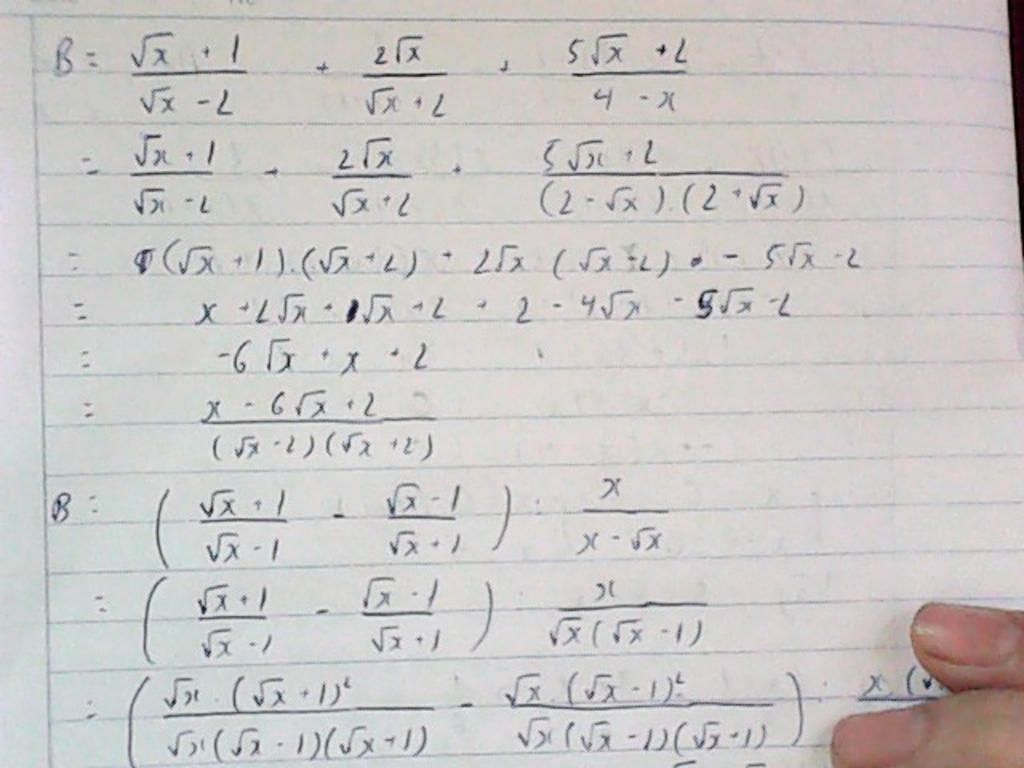 B = (√x + 1)/(√x - 2) + 2√x/(√x + 2) + (5√x + 2)/(4 - x)
= (√x + 1)/(√x - 2) + 2√x/(√x + 2) + (5√x + 2)/((2 - √x).(2 + √x))
= (√x + 1).(√x + 2) + 2√x (√x - 2) - 5√x - 2
= x + 2√x + 1√x + 2 + 2 - 4√x - 5√x - 2
= -6√x + x + 2
= (x - 6√x + 2)/((√x - 2)(√x + 2))
B = ((√x + 1)/(√x - 1) - (√x - 1)/(√x + 1)) : x/(x - √x)
= ((√x + 1)/(√x - 1) - (√x - 1)/(√x + 1)) : x/(√x(√x - 1))
= (√x . (√x + 1)²/(√x(√x - 1)(√x + 1)) - √x . (√x - 1)²/(√x(√x - 1)(√x + 1))) : x (√